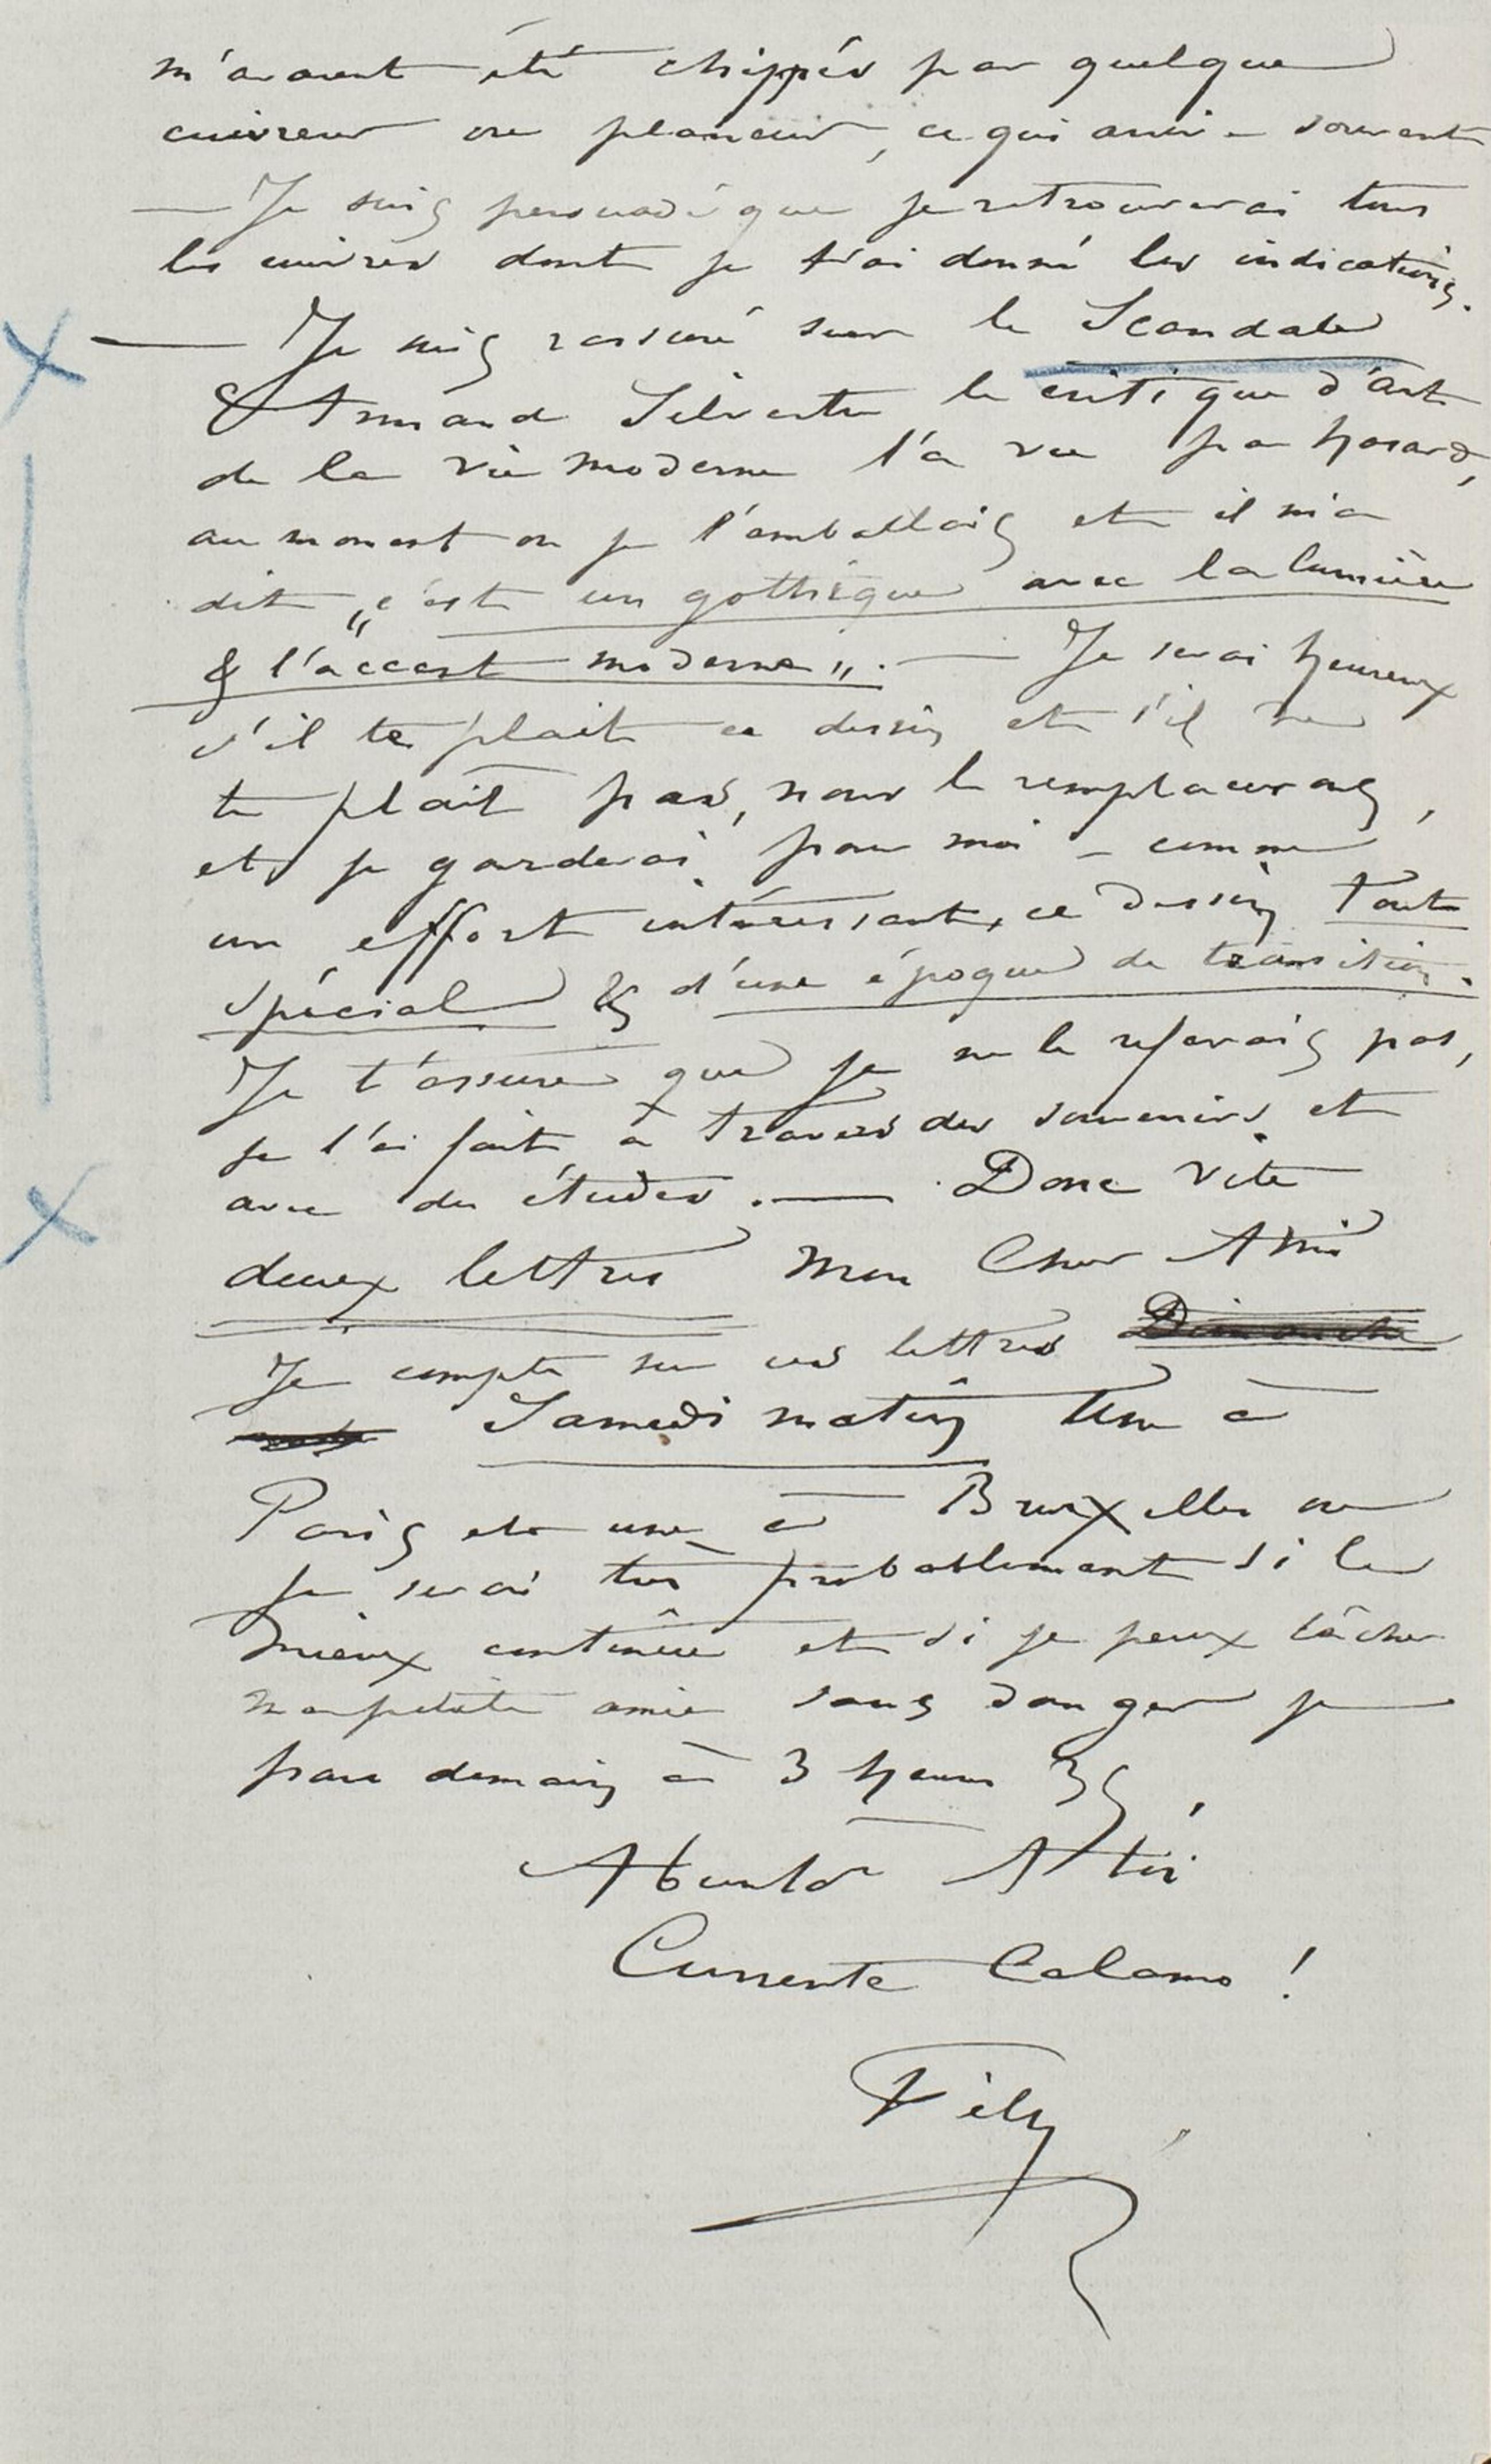 m'avaient été chippés par quelque
cuivreur ou planeur, ce qui arrive souvent
— Je suis persuadé que je retrouverai tous
les cuivres dont je t'ai donné les indications.
— Je suis rassuré sur le Scandale
& Armand Silvestre le critique d'art
de la vie moderne l'a vu par hasard,
au moment où je l'emballais et il m'a
dit „c'est un gothique avec la lumière
& l'accent moderne". — Je serai heureux
s'il te plait ce dessin et s'il ne
te plaît pas, nous le remplacerons,
et je garderai pour moi – comme
un effort intéressant, ce dessin tout
spécial & d'une époque de transition.
Je t'assure que je ne le referais pas,
je l'ai fait à travers des souvenirs et
avec des études. — Donc vite
deux lettres mon Cher Ami
Je compte sur ces lettres Dimanche
Samedi matin Une à
Paris et une à Bruxelles où
je serai très probablement si le
mieux continue et si je peux lâcher
ma petite amie sans danger je
pars demain à 3 heures 35,
à Toi
Currente Calamo !
Fély